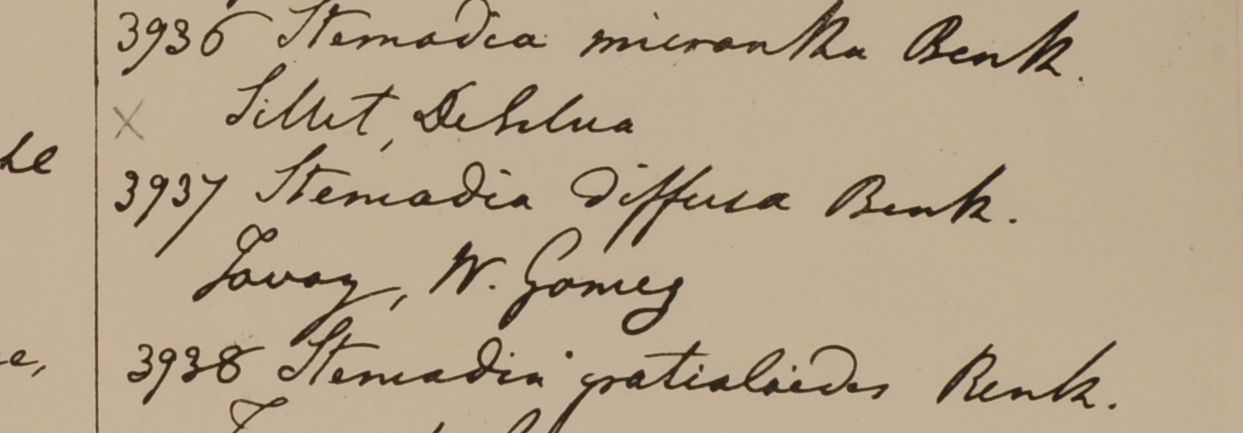 3936 Stemodia micrantha Benth.
Sillet, DeSilva
he
3937 Stemodia diffusa Benth.
Tavoy, W. Gomez
3938 Stemodia gratioloides Benth.
e,